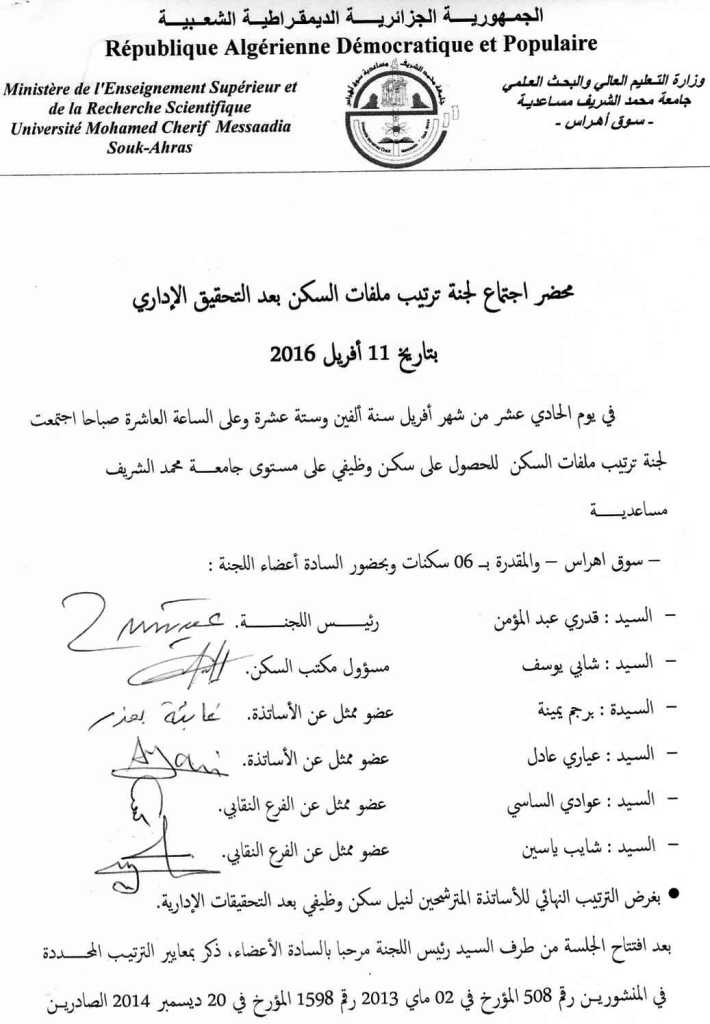 الجمهورية الجزائرية الديمقراطية الشعبية
République Algérienne Démocratique et Populaire
وزارة التعليم العالي والبحث العلمي
جامعة محمد الشريف مساعدية
- سوق أهراس -
Ministère de l'Enseignement Supérieur et
de la Recherche Scientifique
Université Mohamed Cherif Messaadia
Souk-Ahras
محضر اجتماع لجنة ترتيب ملفات السكن بعد التحقيق الإداري
بتاريخ 11 أفريل 2016
في يوم الحادي عشر من شهر أفريل سنة ألفين وستة عشرة وعلى الساعة العاشرة صباحا اجتمعت
لجنة ترتيب ملفات السكن للحصول على سكن وظيفي على مستوى جامعة محمد الشريف
مساعدية
– سوق اهراس – والمقدرة بـ 06 سكنات وبحضور السادة أعضاء اللجنة :
– السيد : قدري عبد المؤمن رئيس اللجنة.
– السيد : شابي يوسف مسؤول مكتب السكن.
– السيدة : برجم يمينة عضو ممثل عن الأساتذة. غائبة بعذر
– السيد : عياري عادل عضو ممثل عن الأساتذة.
– السيد : عوادي الساسي عضو ممثل عن الفرع النقابي.
– السيد : شايب ياسين عضو ممثل عن الفرع النقابي.
● بغرض الترتيب النهائي للأساتذة المترشحين لنيل سكن وظيفي بعد التحقيقات الإدارية.
بعد افتتاح الجلسة من طرف السيد رئيس اللجنة مرحبا بالسادة الأعضاء، ذكر بمعايير الترتيب المحددة
في المنشورين رقم 508 المؤرخ في 02 ماي 2013 رقم 1598 المؤرخ في 20 ديسمبر 2014 الصادرين